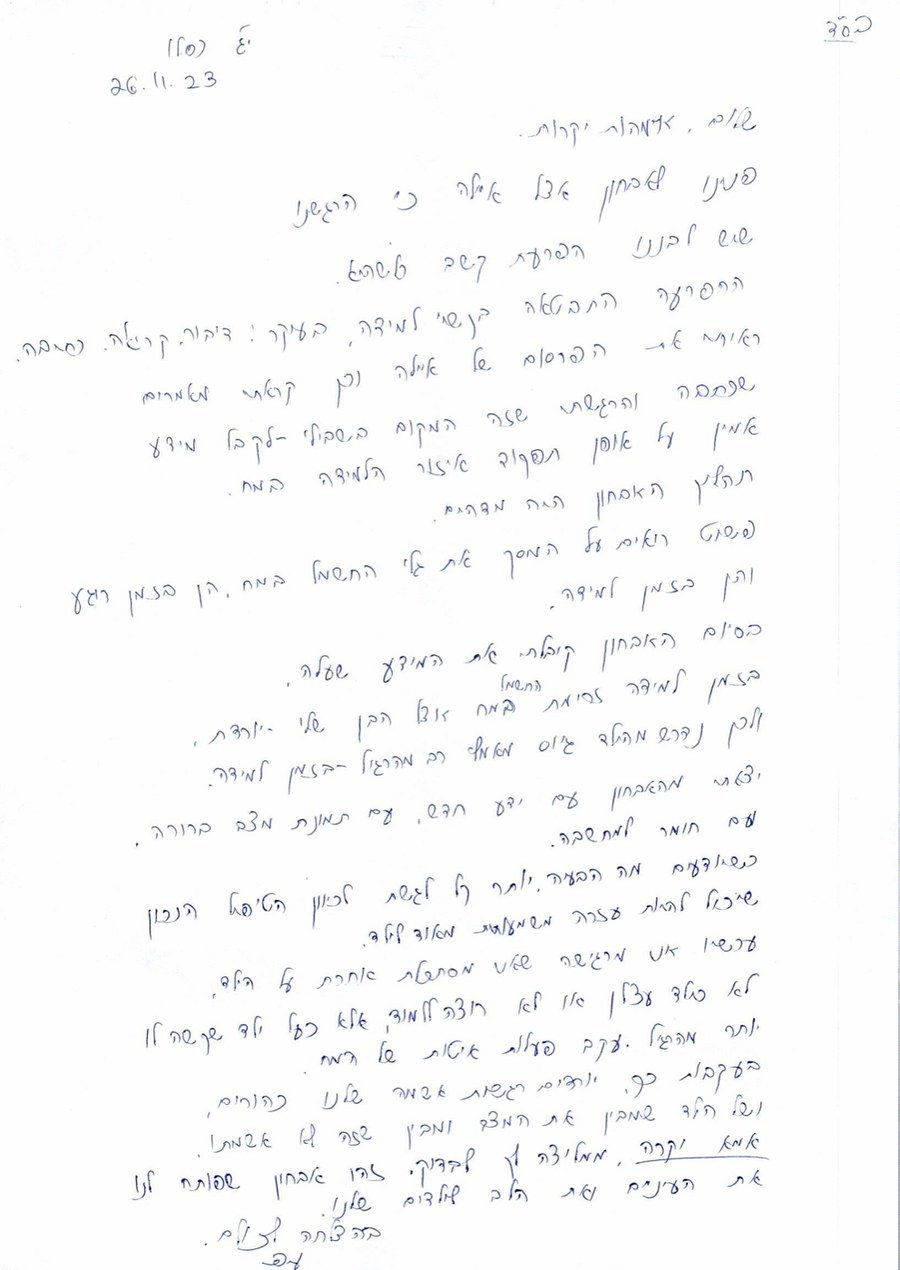 בס"ד
יג' כסלו
26.11.23
שלום, אמהות יקרות.
פנינו לאבחון אצל איילה כי הרגשנו
שיש לבננו הפרעת קשב כלשהיא.
ההפרעה התבטאה בקשיי למידה, בעיקר: דיבור, קריאה, כתיבה.
ראיתי את הפרסום של איילה וכן קראתי מאמרים
שכתבה והרגשתי שזה המקום בשבילי - לקבל מידע
אמין על אופן תפקוד איזור הלמידה במח.
תהליך האבחון היה מדהים.
פשוט רואים על המסך את גלי החשמל במח, הן בזמן רוגע
והן בזמן למידה.
בסיום האבחון קיבלתי את המידע שעלה.
בזמן למידה זרימת החשמל במח אצל הבן שלי - יורדת.
ולכן נדרש מהילד גיוס מאמץ רב מהרגיל - בזמן למידה.
יצאתי מהאבחון עם ידע חדש, עם תמונת מצב ברורה,
ועם חומר למחשבה.
כשיודעים מה הבעיה, יותר קל לגשת לכיוון הטיפול הנכון
שיכול להיות עזרה משמעותית מאוד לילד.
עכשיו אני מרגישה שאני מסתכלת אחרת על הילד,
לא כילד עצלן או לא רוצה ללמוד, אלא כעל ילד שקשה לו
יותר מהרגיל, עקב פעילות איטית של המח.
בעקבות כך, יורדים רגשות אשמה שלנו כהורים,
ושל הילד שמבין את המצב ומבין שזה לא אשמתו!
אמא יקרה, ממליצה לך לבדוק, זהו אבחון שפותח לנו
את העיניים ואת הלב לילדים שלנו.
בהצלחה לכולם.